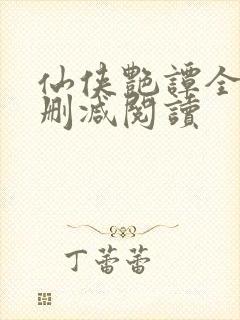 仙俠艷譚全
刪減閱讀
丁蕾蕾